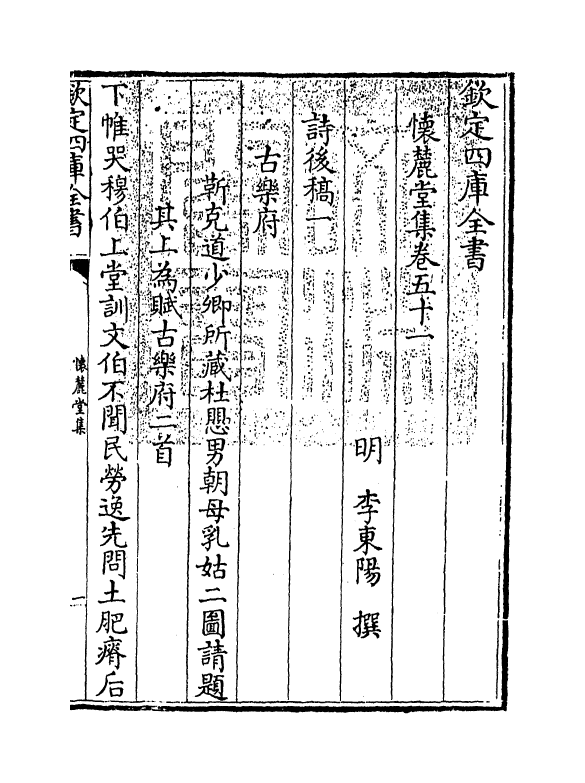 欽定四庫全書
懐麓堂集卷五十一
明 李東陽 撰
詩後稿一
古樂府
靳克道少卿所藏杜愳男朝母乳姑二圖請題
其上為賦古樂府二首
下帷哭穆伯上堂訓文伯不聞民勞逸先問土肥瘠后
欽定四庫全書
懐麓堂集
一